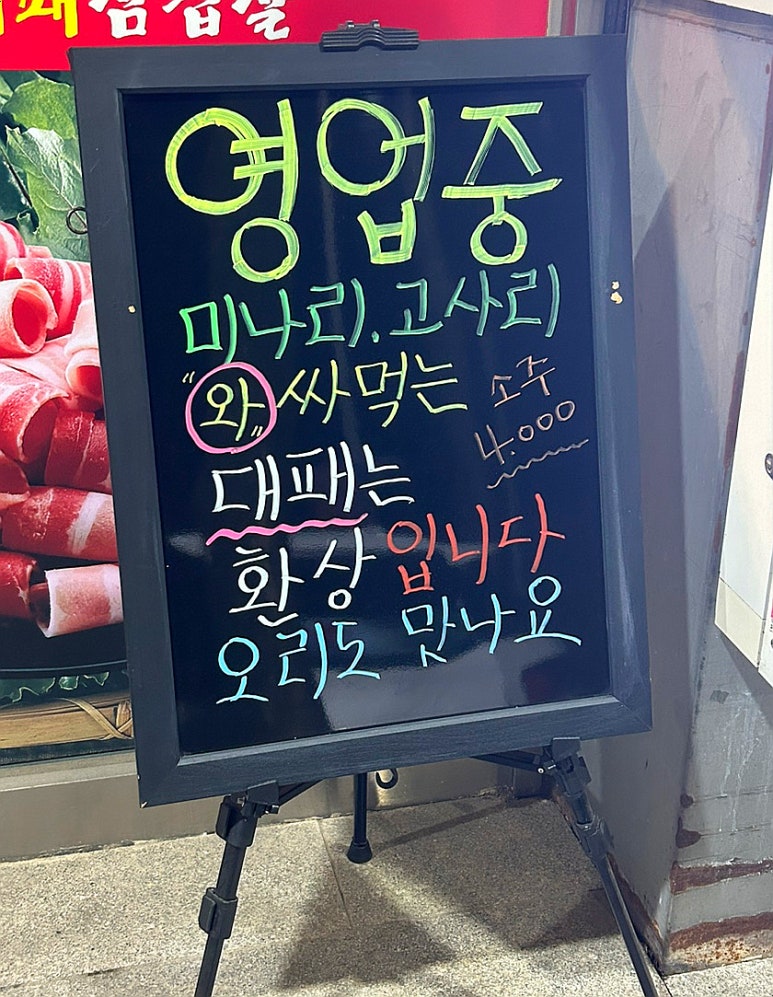 대패삼겹살
영업중
미나리.고사리
"와" 싸먹는
소주
4.000
대패는
환상 입니다
오리도 맛나요